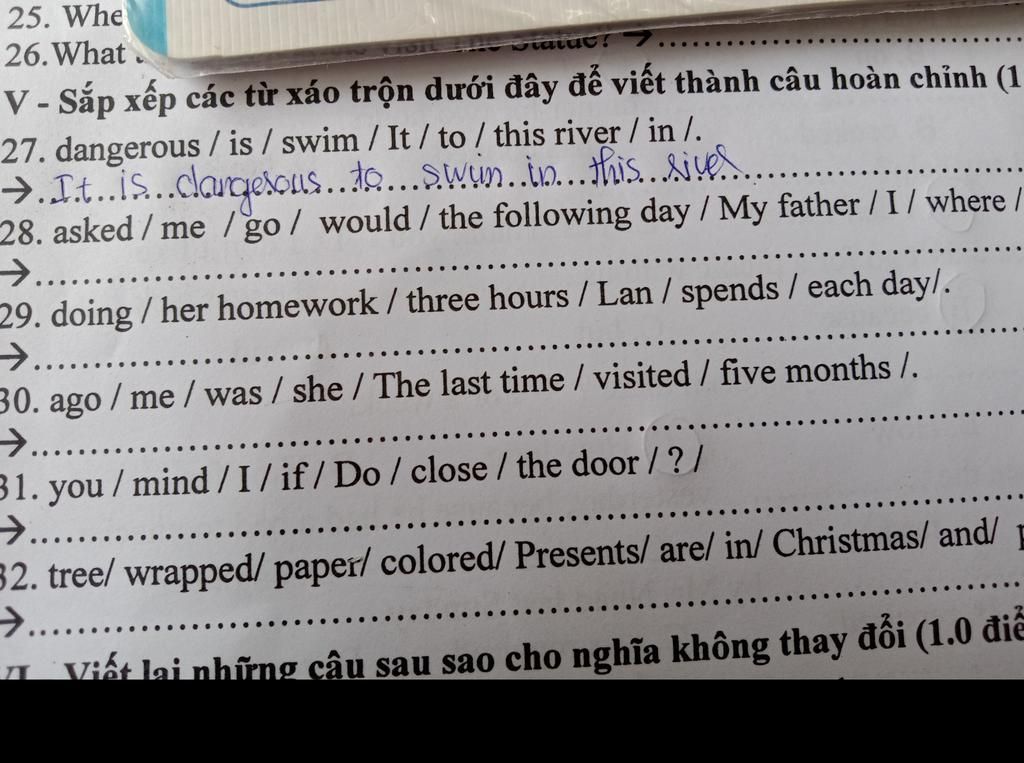 25. Whe
26. What
V - Sắp xếp các từ xáo trộn dưới đây để viết thành câu hoàn chỉnh (1
27. dangerous / is / swim / It / to / this river / in /.
→ It is dangerous to swim in this river
28. asked / me / go / would / the following day / My father / I / where /
→
29. doing / her homework / three hours / Lan / spends / each day/.
→
30. ago / me / was / she / The last time / visited / five months /.
→
31. you / mind / I / if / Do / close / the door / ? /
→
32. tree/ wrapped/ paper/ colored/ Presents/ are/ in/ Christmas/ and/
→
VI Viết lại những câu sau sao cho nghĩa không thay đổi (1.0 điể